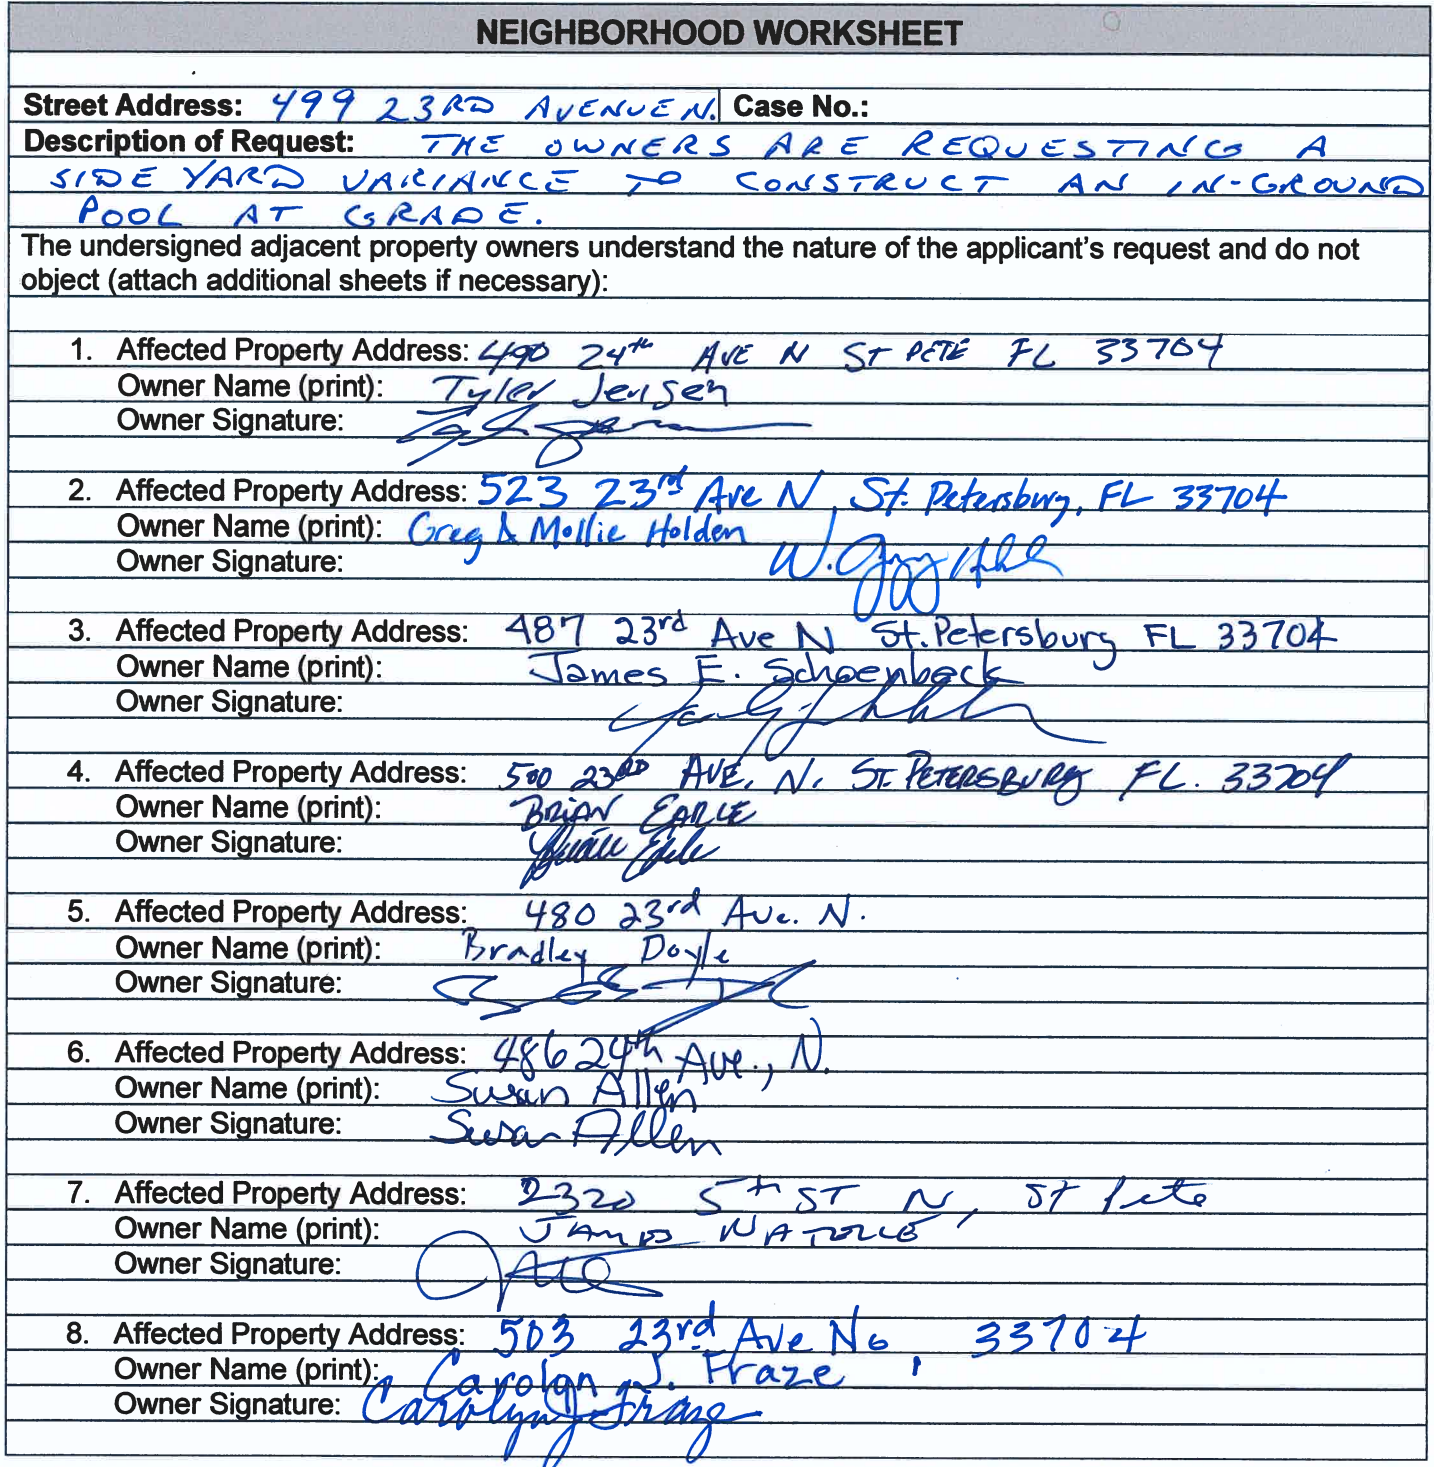 NEIGHBORHOOD WORKSHEET
Street Address: 499 23RD AVENUE N. Case No.:
Description of Request: THE OWNERS ARE REQUESTING A
SIDE YARD VARIANCE TO CONSTRUCT AN IN-GROUND
POOL AT GRADE.
The undersigned adjacent property owners understand the nature of the applicant's request and do not
object (attach additional sheets if necessary):
1. Affected Property Address: 490 24th AVE N ST PETE FL 33704
Owner Name (print): Tyler Jensen
Owner Signature:
2. Affected Property Address: 523 23rd Ave N, St. Petersburg, FL 33704
Owner Name (print): Greg & Mollie Holden
Owner Signature: W.
3. Affected Property Address: 487 23rd Ave N St. Petersburg FL 33704
Owner Name (print): James E. Schoenback
Owner Signature:
4. Affected Property Address: 500 23RD AVE, N. ST. PETERSBURG FL. 33704
Owner Name (print): BRIAN EARLE
Owner Signature:
5. Affected Property Address: 480 23rd Ave. N.
Owner Name (print): Bradley Doyle
Owner Signature:
6. Affected Property Address: 486 24th Ave., N.
Owner Name (print): Susan Allen
Owner Signature: Susan Allen
7. Affected Property Address: 2320 5th ST N, St Pete
Owner Name (print): JAMES
Owner Signature:
8. Affected Property Address: 503 23rd Ave No, 33704
Owner Name (print): Carolyn J. Fraze
Owner Signature: Carolyn J. Fraze